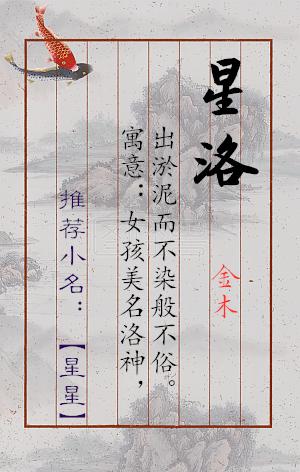 星洛
金木
寓意：女孩美名洛神，
出淤泥而不染般不俗。
推荐小名：【星星】